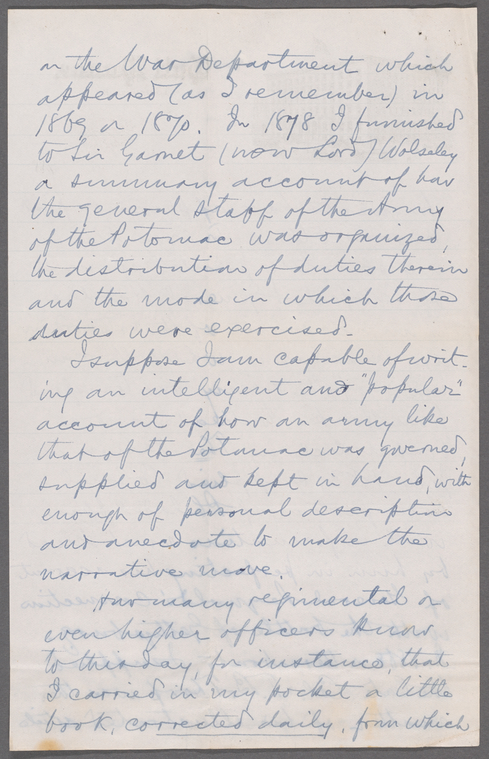 on the War Department which
appeared (as I remember) in
1869 or 1870. In 1878 I furnished
to Sir Garnet (now Lord) Wolseley
a summary account of how
the general staff of the Army
of the Potomac was organized,
the distribution of duties therein
and the mode in which those
duties were exercised.
I suppose I am capable of writ-
ing an intelligent and "popular"
account of how an army like
that of the Potomac was governed,
supplied and kept in hand, with
enough of personal description
and anecdote to make the
narrative move.
How many regimental or
even higher officers know
to this day, for instance, that
I carried in my pocket a little
book, corrected daily, from which